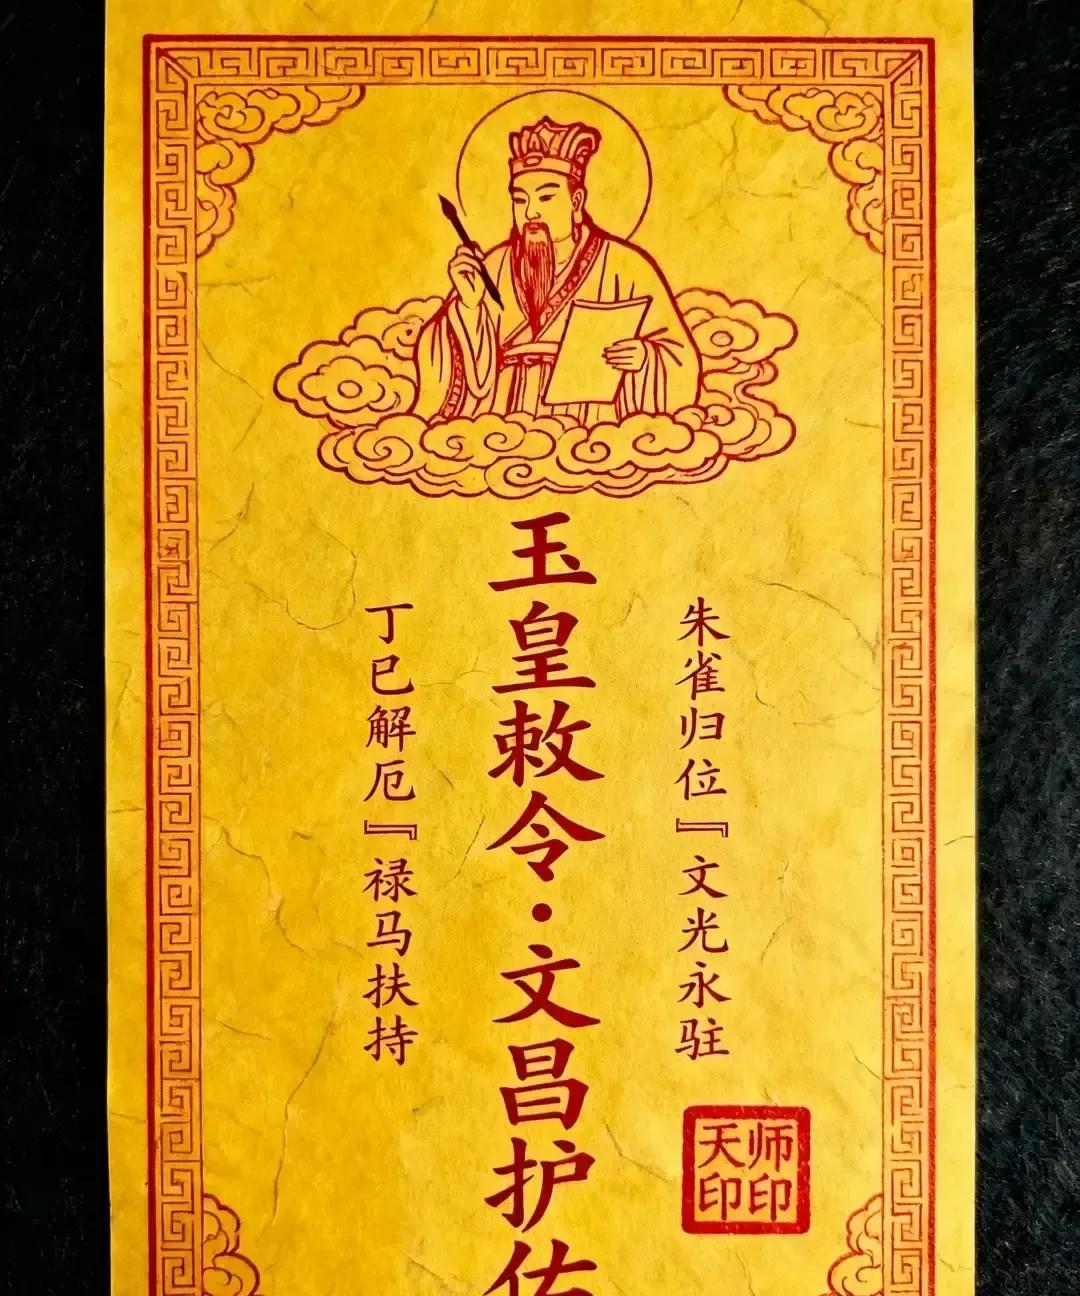 玉皇敕令·文昌护佑
朱雀归位『文光永驻
丁巳解厄『禄马扶持
天师
印印